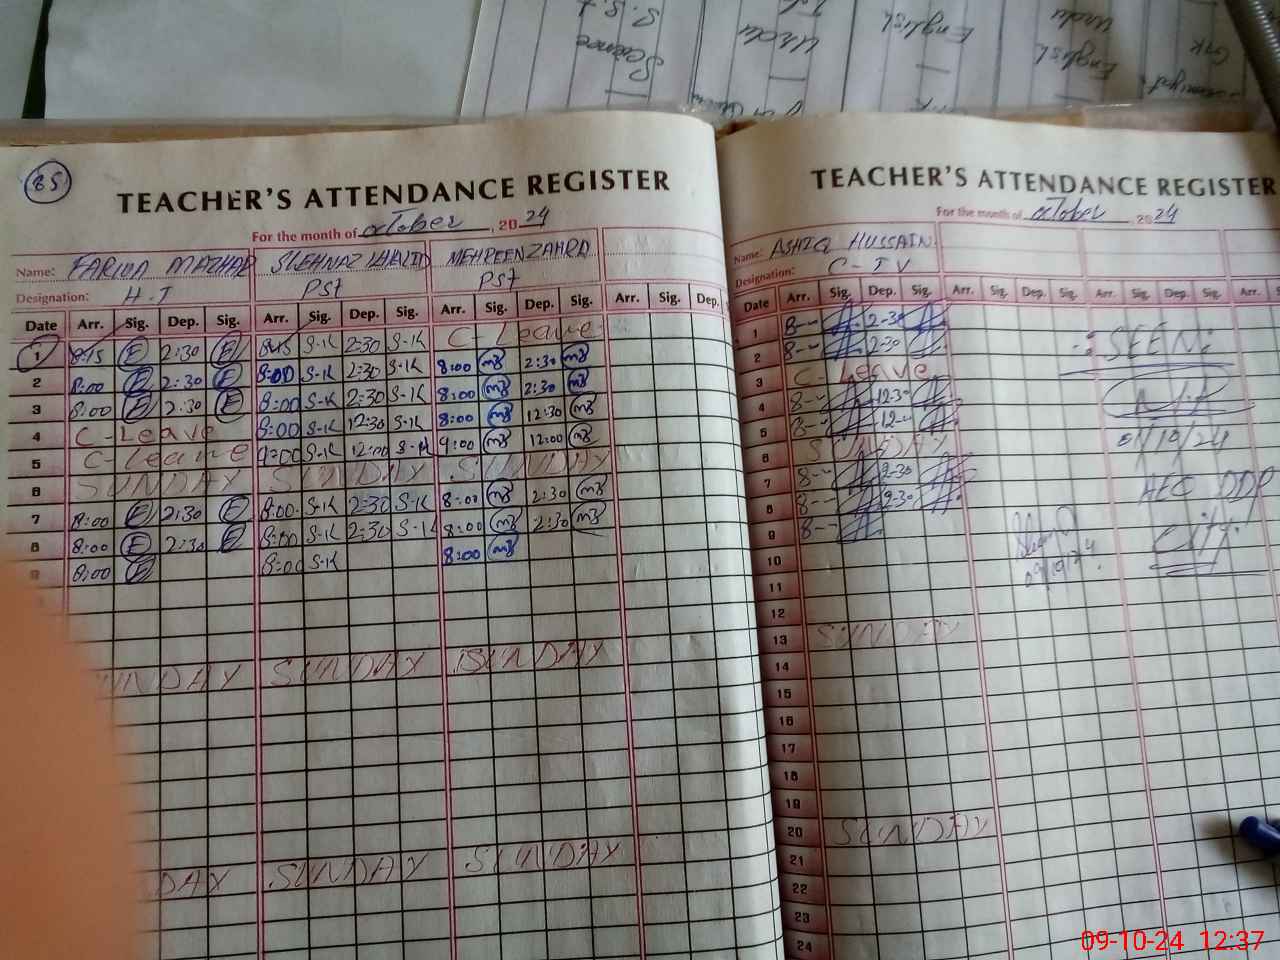 S.S.T
Science
Urdu
English
Urdu
English
85
TEACHER'S ATTENDANCE REGISTER
For the month of october, 2024
Name: FARIDA MAZHAR SHEHNAZ KHALID MEHREEN ZAHRA
Designation: H.T PST PST
Date Arr. Sig. Dep. Sig. Arr. Sig. Dep. Sig. Arr. Sig. Dep. Sig. Arr. Sig. Dep.
1 8:15 2:30 8:15 S-K 2:30 S-K C-Leave
2 8:00 2:30 8:00 S-K 2:30 S-K 8:00 2:30
3 8:00 2:30 8:00 S-K 2:30 S-K 8:00 2:30
4 C-Leave 8:00 S-K 12:30 S-K 8:00 12:30
5 C-Leave S-K 12:00 S-K 9:00 12:00
6 SUNDAY SUNDAY SUNDAY
7 8:00 2:30 8:00 S-K 2:30 S-K 8:00 2:30
8 8:00 2:30 8:00 S-K 2:30 S-K 8:00 2:30
9 8:00 8:00 S-K 8:00
SUNDAY SUNDAY SUNDAY
DAY SUNDAY SUNDAY
TEACHER'S ATTENDANCE REGISTER
For the month of october, 2024
Name: ASHIQ HUSSAIN
Designation: C-IV
Date Arr. Sig. Dep. Sig. Arr. Sig. Dep. Sig. Arr. Sig. Dep. Sig. Arr.
1 8-- 2-30
2 8-- 2-30
3 C-Leave
4 8-- 12-30
5 8-- 12--
6 SUNDAY
7 8-- 2-30
8 8-- 2-30
9 8--
10
11
12
13 SUNDAY
14
15
16
17
18
19
20 SUNDAY
21
22
23
24
SEEN
01/10/24
AEO
City
09-10-24 12:37